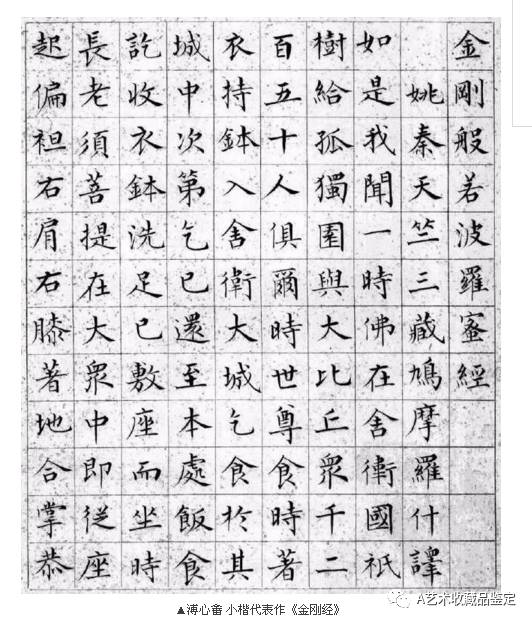 金剛般若波羅蜜經
姚秦天竺三藏鳩摩羅什譯
如是我聞一時佛在舍衛國祇
樹給孤獨園與大比丘衆千二
百五十人俱爾時世尊食時著
衣持鉢入舍衛大城乞食於其
城中次第乞已還至本處飯食
訖收衣鉢洗足已敷座而坐時
長老須菩提在大衆中即從座
起偏袒右肩右膝著地合掌恭
▲溥心畬 小楷代表作《金刚经》
A艺术收藏品鉴定